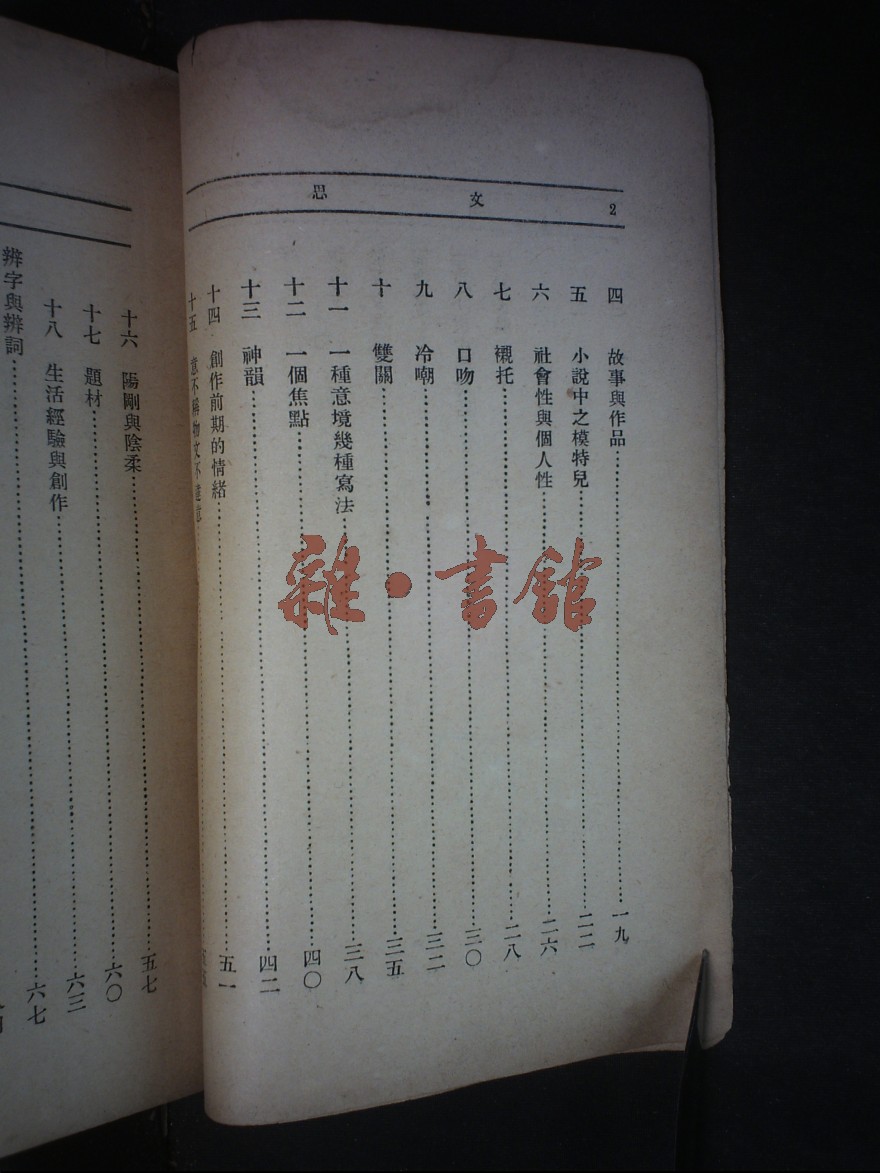 2 文思
四 故事與作品……一九
五 小說中之模特兒……二二
六 社會性與個人性……二六
七 襯托……二八
八 口吻……三〇
九 冷嘲……三二
十 雙關……三五
十一 一種意境幾種寫法……三八
十二 一個焦點……四〇
十三 神韻……四二
十四 創作前期的情緒……五一
十五 意不稱物文不逮意……
十六 陽剛與陰柔……五七
十七 題材……六〇
十八 生活經驗與創作……六三
辨字與辨詞……六七
雜·書館